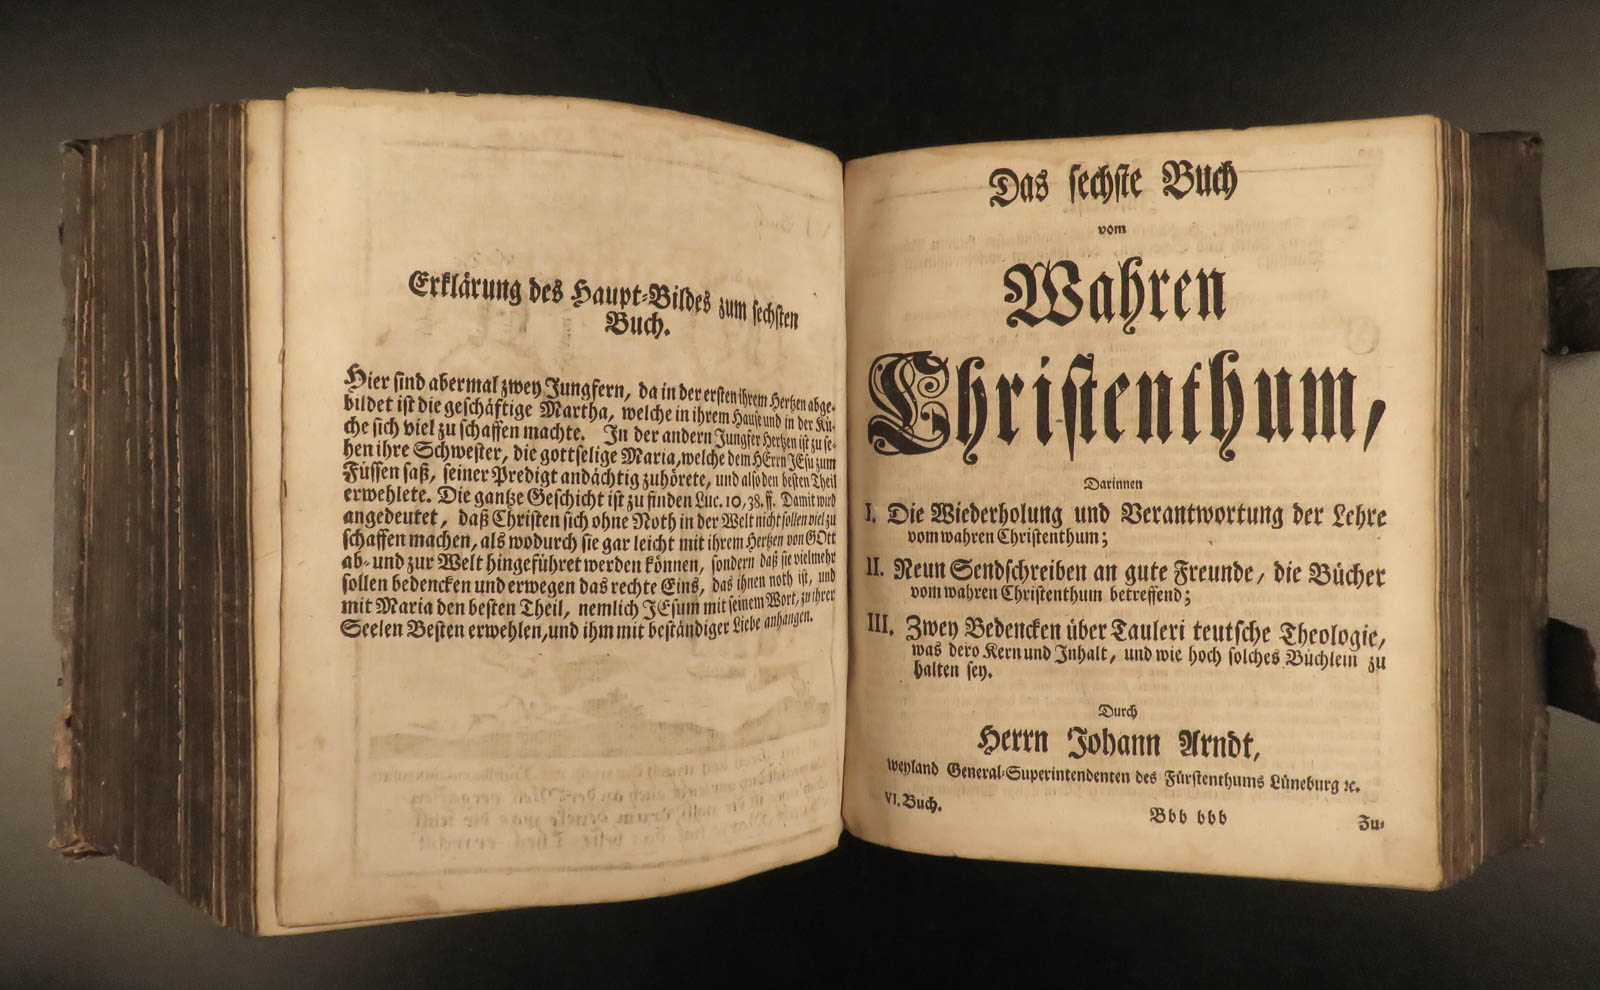 Erklärung des Haupt-Bildes zum sechsten
Buch.
Hier sind abermal zwey Jungfern, da in der ersten ihrem Hertzen abge-
bildet ist die geschäftige Martha, welche in ihrem Hause und in der Kü-
che sich viel zu schaffen machte. In der andern Jungfer Hertzen ist zu se-
hen ihre Schwester, die gottselige Maria, welche dem HErrn JEsu zum
Füssen saß, seiner Predigt andächtig zuhörete, und also den besten Theil
erwehlete. Die gantze Geschicht ist zu finden Luc. 10, 38. ff. Damit wird
angedeutet, daß Christen sich ohne Noth in der Welt nicht sollen viel zu
schaffen machen, als wodurch sie gar leicht mit ihrem Hertzen von GOtt
ab- und zur Welt hingeführet werden können, sondern daß sie vielmehr
sollen bedencken und erwegen das rechte Eins, das ihnen noth ist, und
mit Maria den besten Theil, nemlich JEsum mit seinem Wort, zu ihrer
Seelen Besten erwehlen, und ihm mit beständiger Liebe anhangen.
Das sechste Buch
vom
Wahren
Christenthum,
Darinnen
I. Die Wiederholung und Verantwortung der Lehre
vom wahren Christenthum;
II. Neun Sendschreiben an gute Freunde, die Bücher
vom wahren Christenthum betreffend;
III. Zwey Bedencken über Tauleri teutsche Theologie,
was dero Kern und Inhalt, und wie hoch solches Büchlein zu
halten sey.
Durch
Herrn Johann Arndt,
weyland General-Superintendenten des Fürstenthums Lüneburg ꝛc.
VI. Buch.
Bbb bbb
Zu-